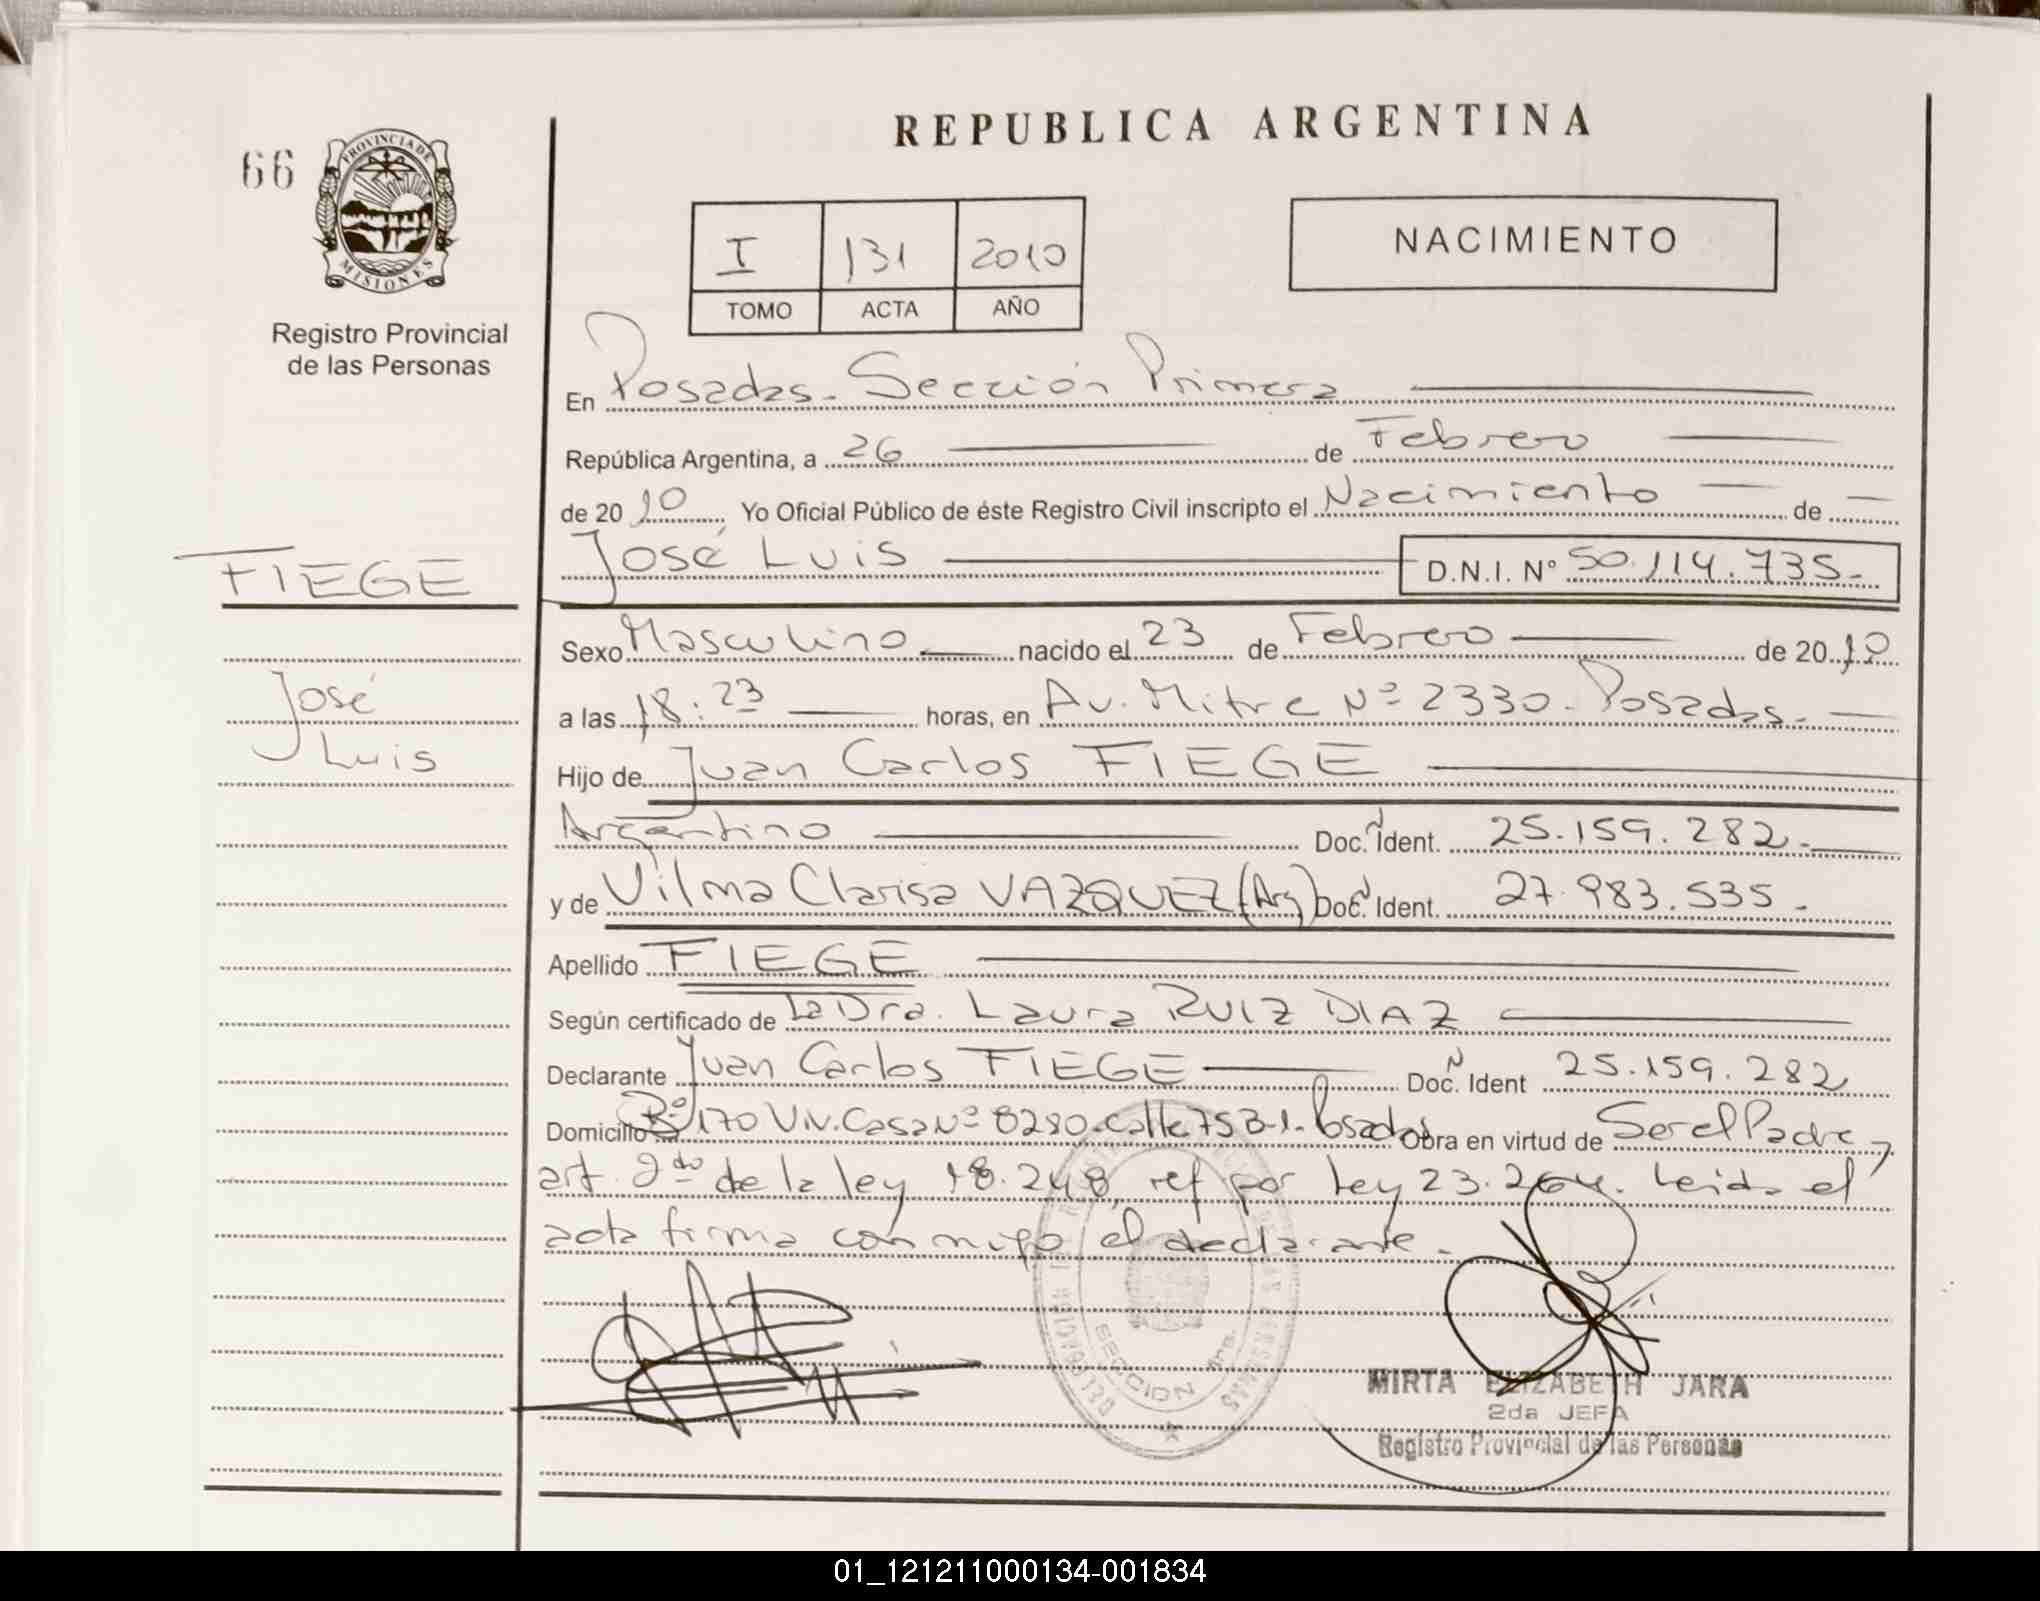 REPUBLICA ARGENTINA
66
PROVINCIA DE
MISIONES
Registro Provincial
de las Personas
I 131 2010
TOMO ACTA AÑO
NACIMIENTO
En Posadas. Sección Primera
República Argentina, a 26 de Febrero
de 20 10 Yo Oficial Público de éste Registro Civil inscripto el Nacimiento de
José Luis D.N.I. Nº 50.114.735.-
FIEGE
José
Luis
Sexo Masculino nacido el 23 de Febrero de 20 10
a las 18:23 horas, en Av. Mitre Nº 2330. Posadas.-
Hijo de Juan Carlos FIEGE
Argentino Doc. N Ident. 25.159.282.-
y de Vilma Clarisa VAZQUEZ (Arg) Doc. N Ident. 27.983.535.-
Apellido FIEGE
Según certificado de La Dra. Laura RUIZ DIAZ
Declarante Juan Carlos FIEGE Doc. N Ident 25.159.282
Domicilio Bº 170 Viv. Casa Nº 8280. Calle 75B-1. Posadas Obra en virtud de Ser el Padre,
art. 2do de la ley 18.248, ref por Ley 23.264. Leida el
acta firma conmigo el declarante.
DELEGACION
SECCION 1ra.
MIRTA ELIZABETH JARA
2da JEFA
Registro Provincial de las Personas
01_121211000134-001834